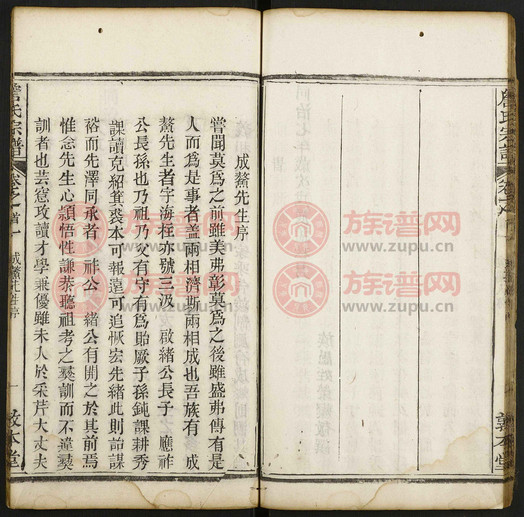 成鰲先生序
嘗聞莫爲之前雖美弗彰莫爲之後雖盛弗傳有是
人而爲是事者蓋兩相濟斯兩相成也吾族有 成
鰲先生者字海 亦號三汲 啟緒公長子 應祚
公長孫也乃祖乃父有守有爲貽厥子孫鈍課耕秀
課讀克紹箕裘本可報遠可追恢宏先緒此則詒謀
裕而先澤同承者 祚公 緒公有開之於其前焉
惟念先生心頴悟性謙恭聽祖考之彝訓而不違
訓者也芸窓攻讀才學兼優雖未入於采芹大丈夫
詹氏宗譜
卷之首一
成鰲先生序
一
敦本堂
詹氏宗譜
卷之
敦本堂
族谱网
www.zupu.cn
族谱网
www.zupu.cn
族谱网
www.zupu.cn
族谱网
www.zupu.cn